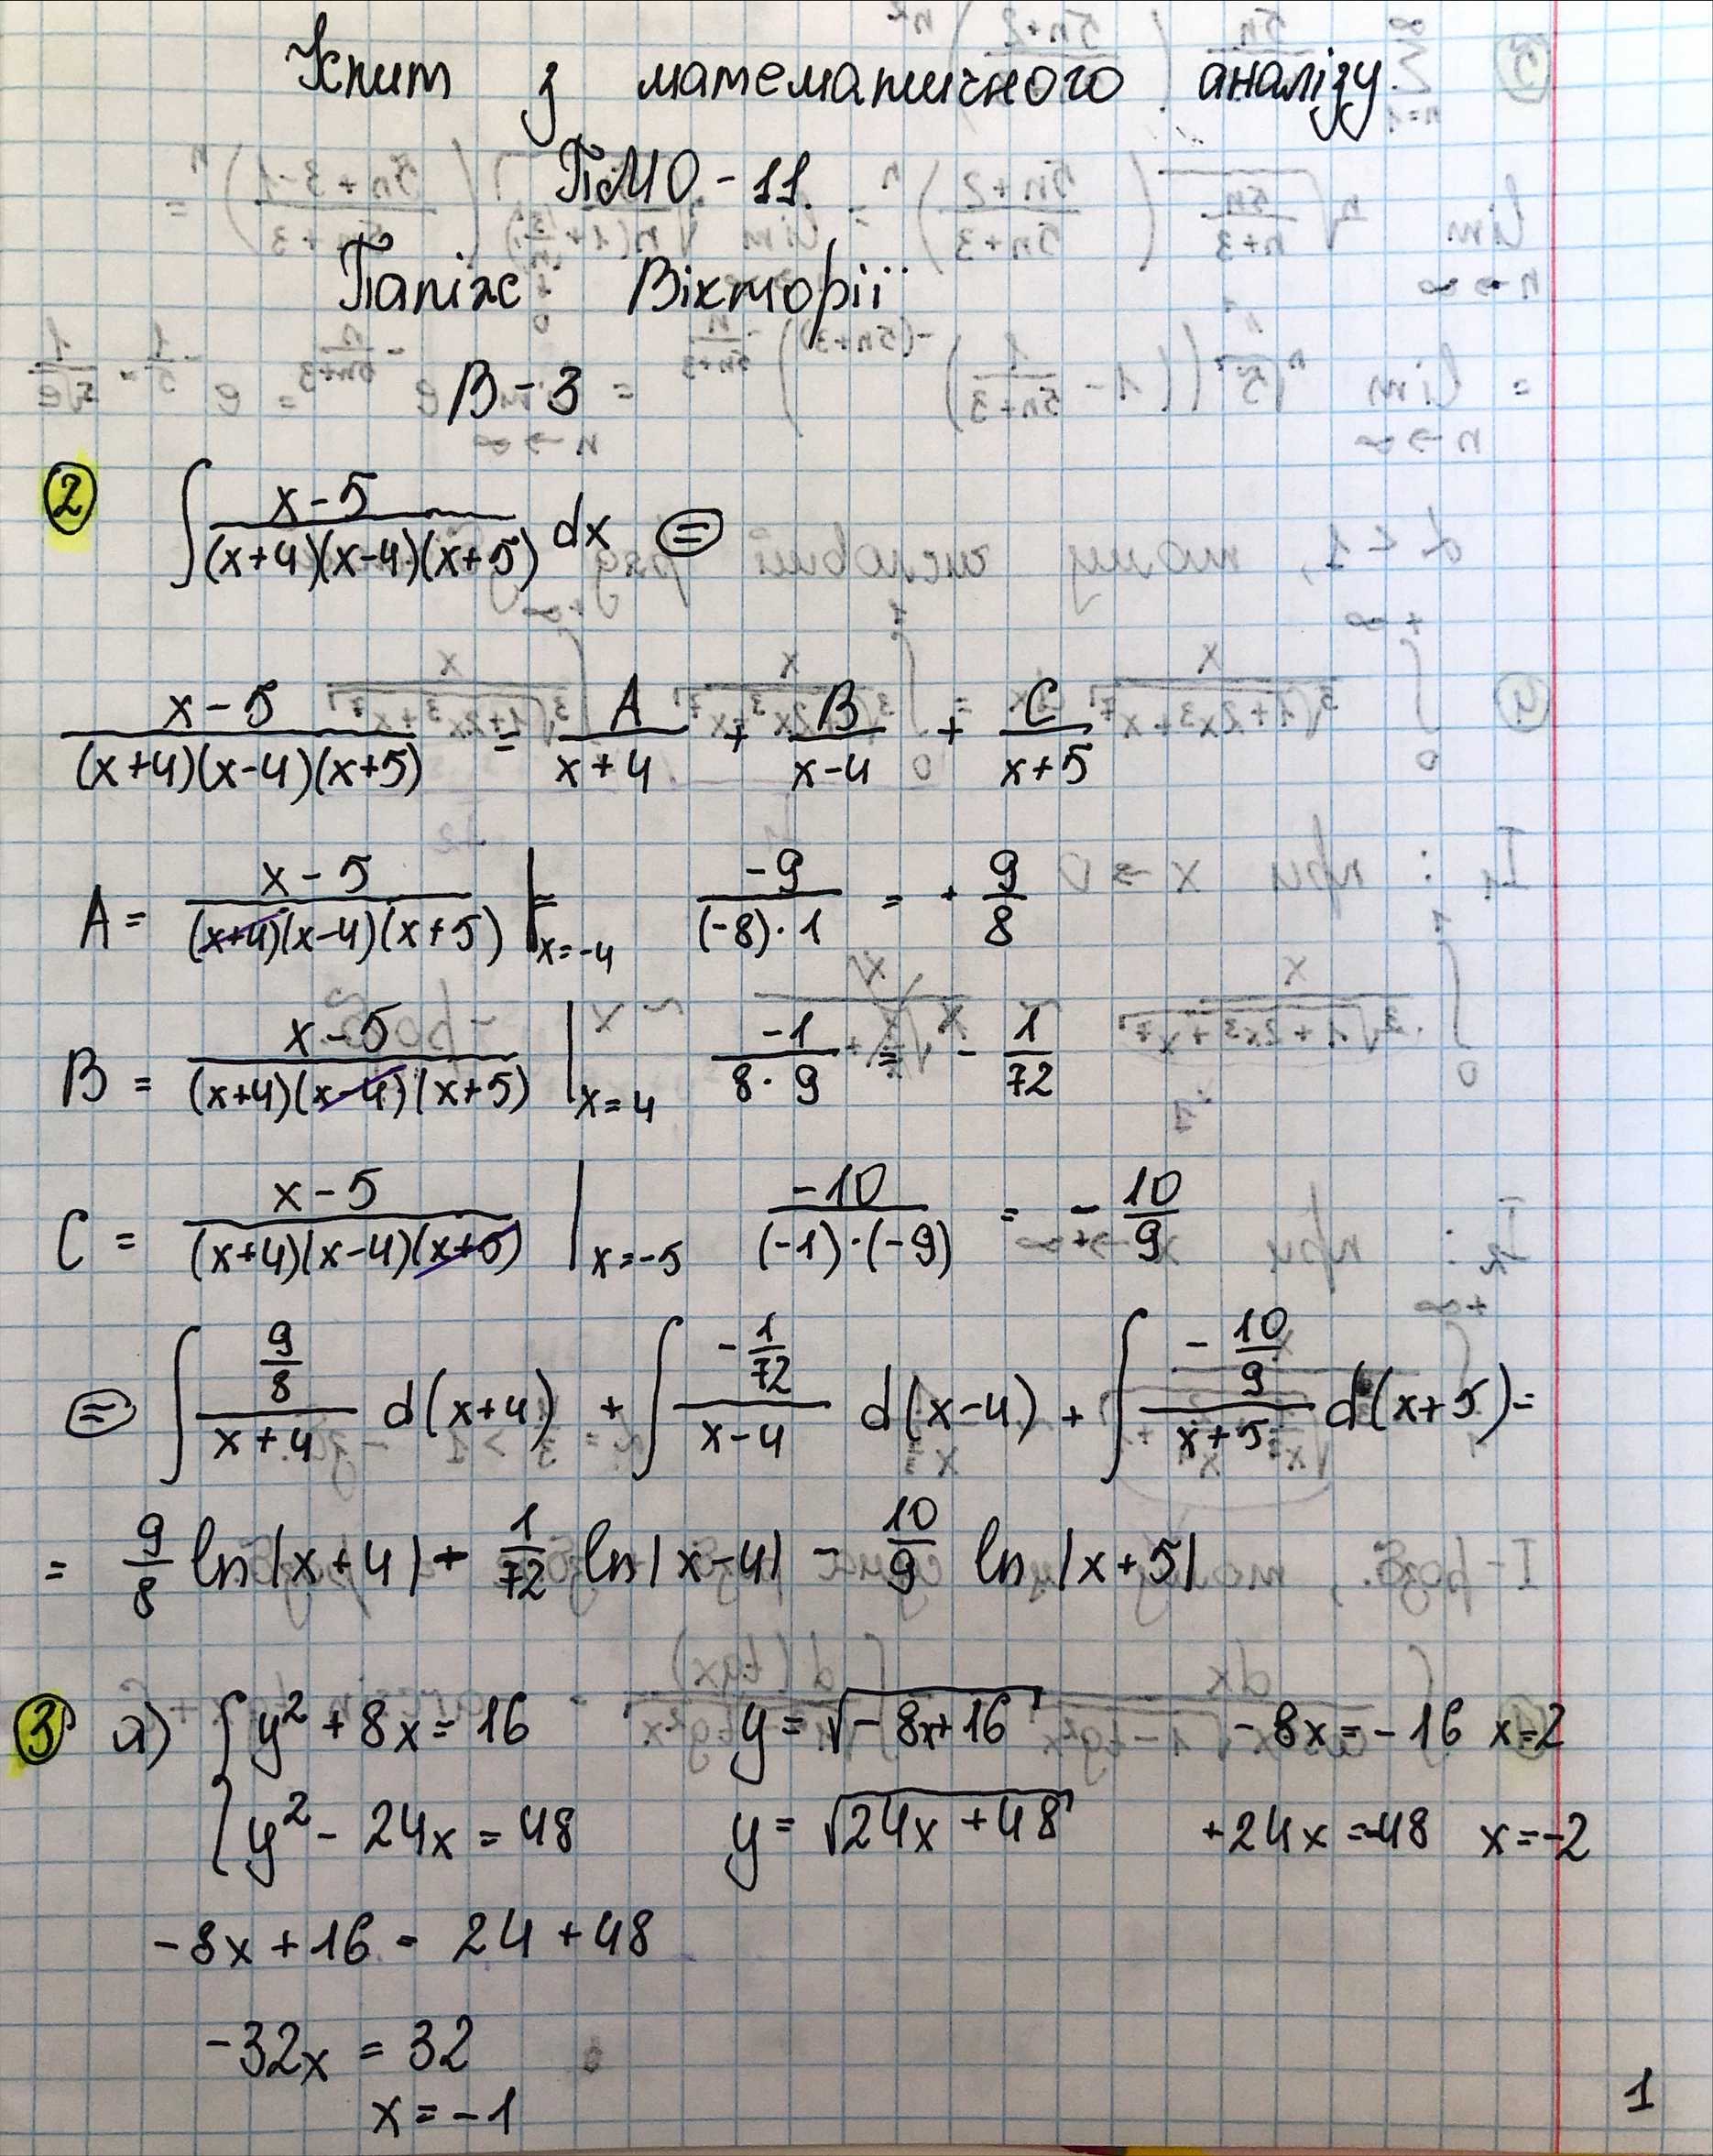 Іспит з математичного аналізу.
ПМО-11.
Папіж Вікторії
В-3
② ∫ (x-5)/((x+4)(x-4)(x+5)) dx ⊜
(x-5)/((x+4)(x-4)(x+5)) = A/(x+4) + B/(x-4) + C/(x+5)
A = (x-5)/((x+4)(x-4)(x+5)) |= x=-4 -9/((-8)·1) = + 9/8
B = (x-5)/((x+4)(x-4)(x+5)) | x=4 -1/(8·9) = - 1/72
C = (x-5)/((x+4)(x-4)(x+5)) | x=-5 -10/((-1)·(-9)) = - 10/9
⊜ ∫ (9/8)/(x+4) d(x+4) + ∫ (-1/72)/(x-4) d(x-4) + ∫ (-10/9)/(x+5) d(x+5) =
= 9/8 ln|x+4| + 1/72 ln|x-4| - 10/9 ln|x+5|
③ а) { y² + 8x = 16 y = √(-8x+16) -8x = -16 x=2
y² - 24x = 48 y = √(24x+48) +24x = -48 x=-2
-8x + 16 = 24 + 48
-32x = 32
x = -1
1